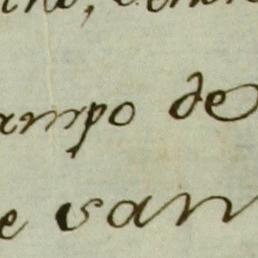 ampo de
e van